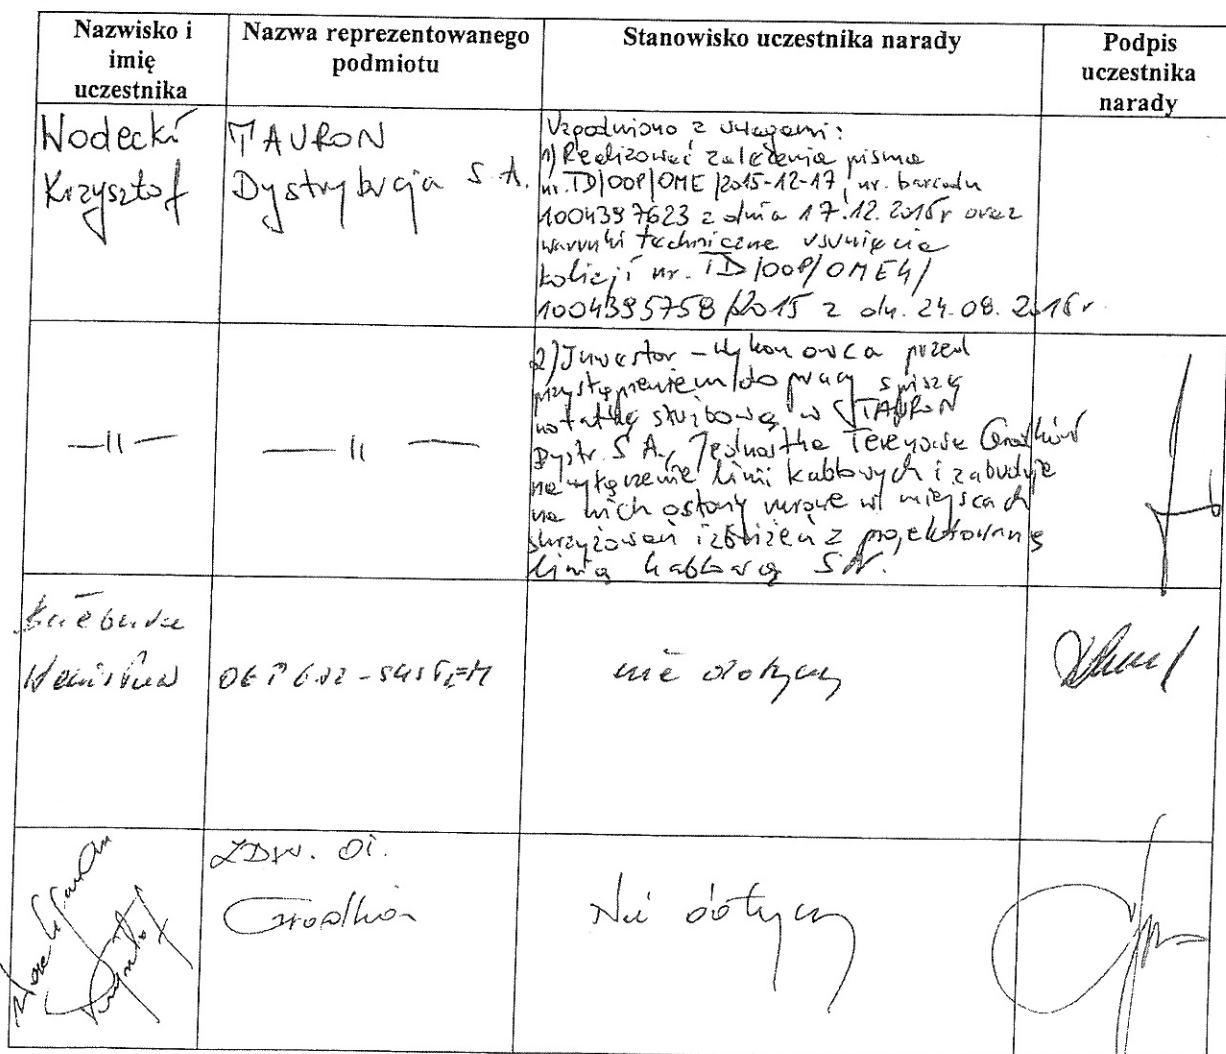 Nazwisko i
imię
uczestnika
Nazwa reprezentowanego
podmiotu
Stanowisko uczestnika narady
Podpis
uczestnika
narady
Wodecki
Krzysztof
TAURON
Dystrybucja S.A.
Uzgodniono z uwagami:
1) Realizować zalecenia pisma
nr. TD/OOP/OME/2015-12-17, nr. barcodu
1004397623 z dnia 17.12.2015r oraz
warunki techniczne usunięcia
kolizji nr. TD/OOP/OME4/
1004395758/2015 z dn. 24.08.2015r.
—||—
—||—
2) Inwestor - wykonowca przed
przystąpieniem do pracy spisze
notatkę służbową w TAURON
Dystr. S.A., Jednostka Terenowa Grodków
na wyłączenie linii kablowych i zabuduje
na nich osłony rurowe w miejscach
skrzyżowań i zbliżeń z projektowaną
linią kablową SN.
nie dotyczy
ZDW. Ol.
Grodków
Nie dotyczy